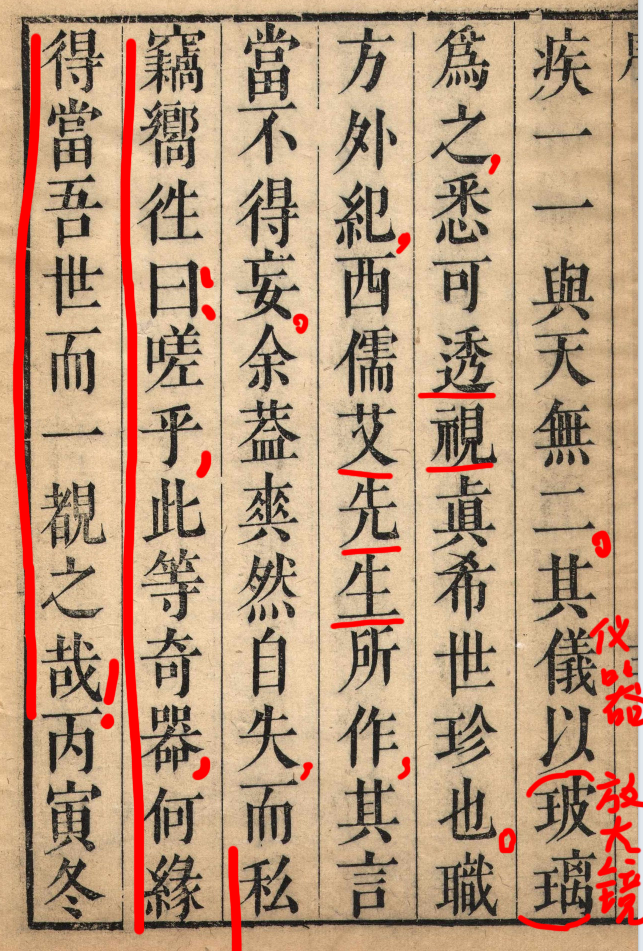 疾一一與天無二。其儀以玻璃
仪器
放大镜
為之,悉可透視眞希世珍也。職
方外紀,西儒艾先生所作,其言
當不得妄。余葢爽然自失,而私
竊嚮徃曰:嗟乎,此等奇器,何緣
得當吾世而一覩之哉!丙寅冬